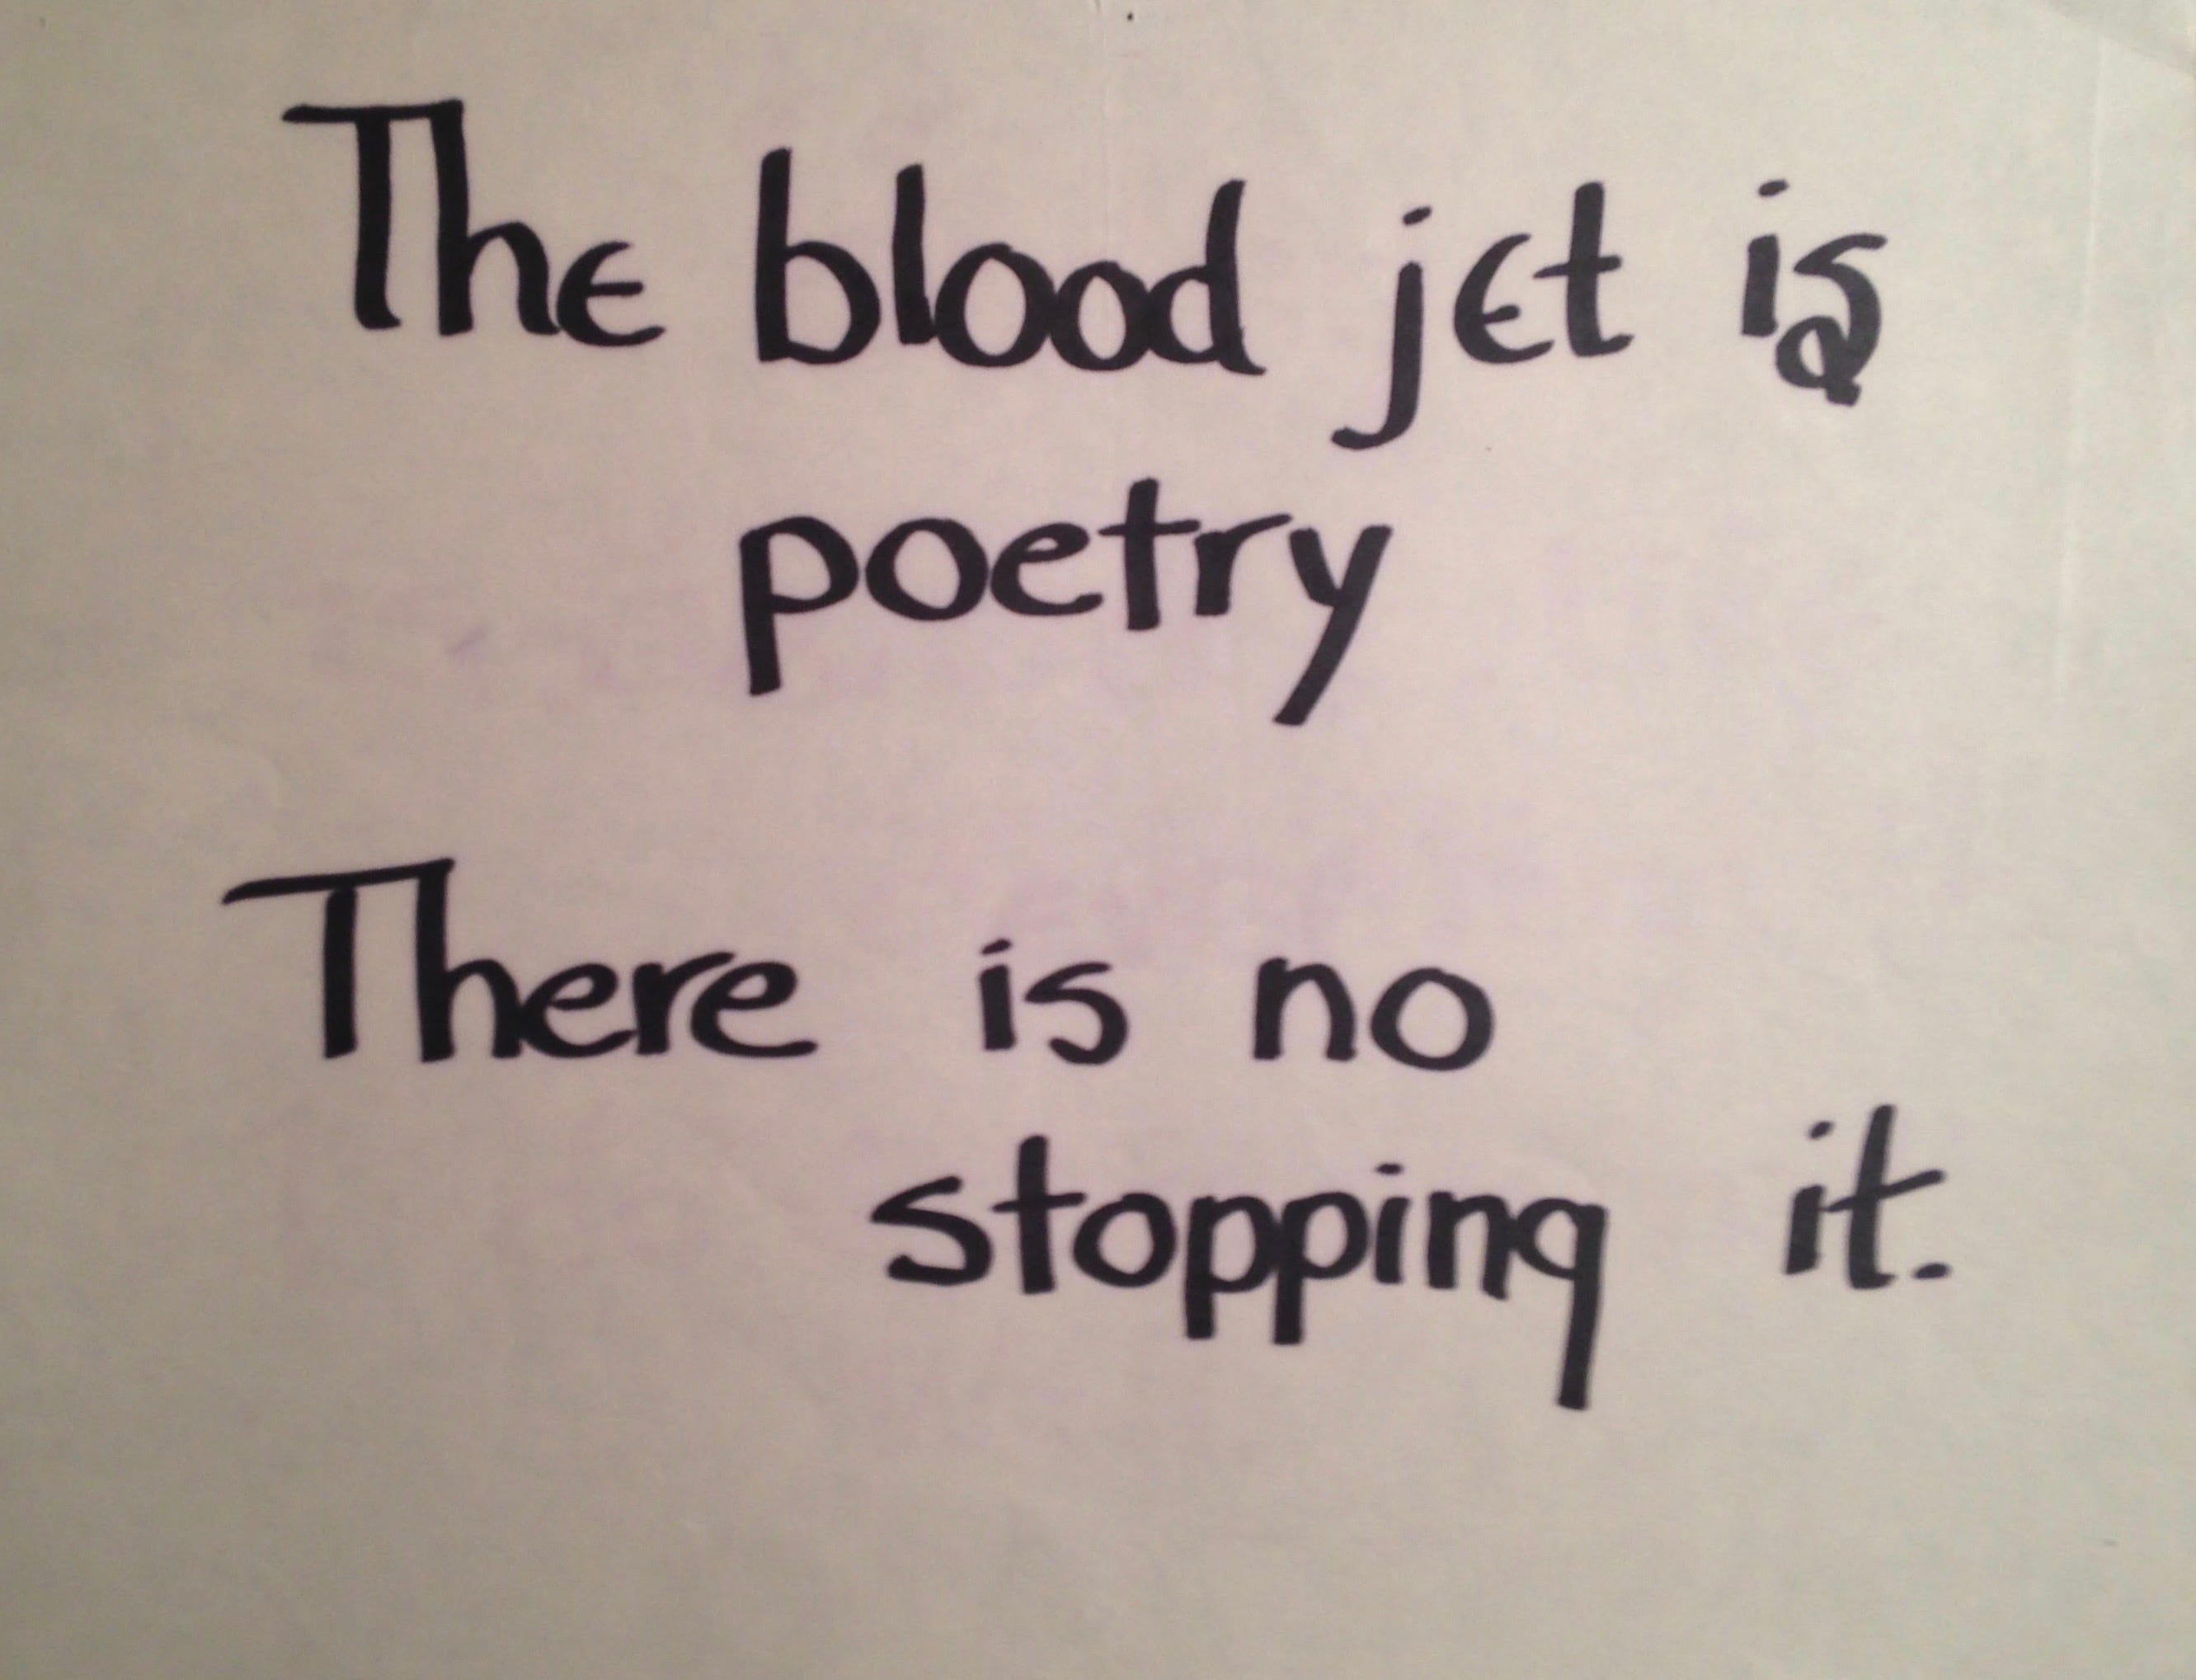 The blood jet is
poetry
There is no
stopping it.